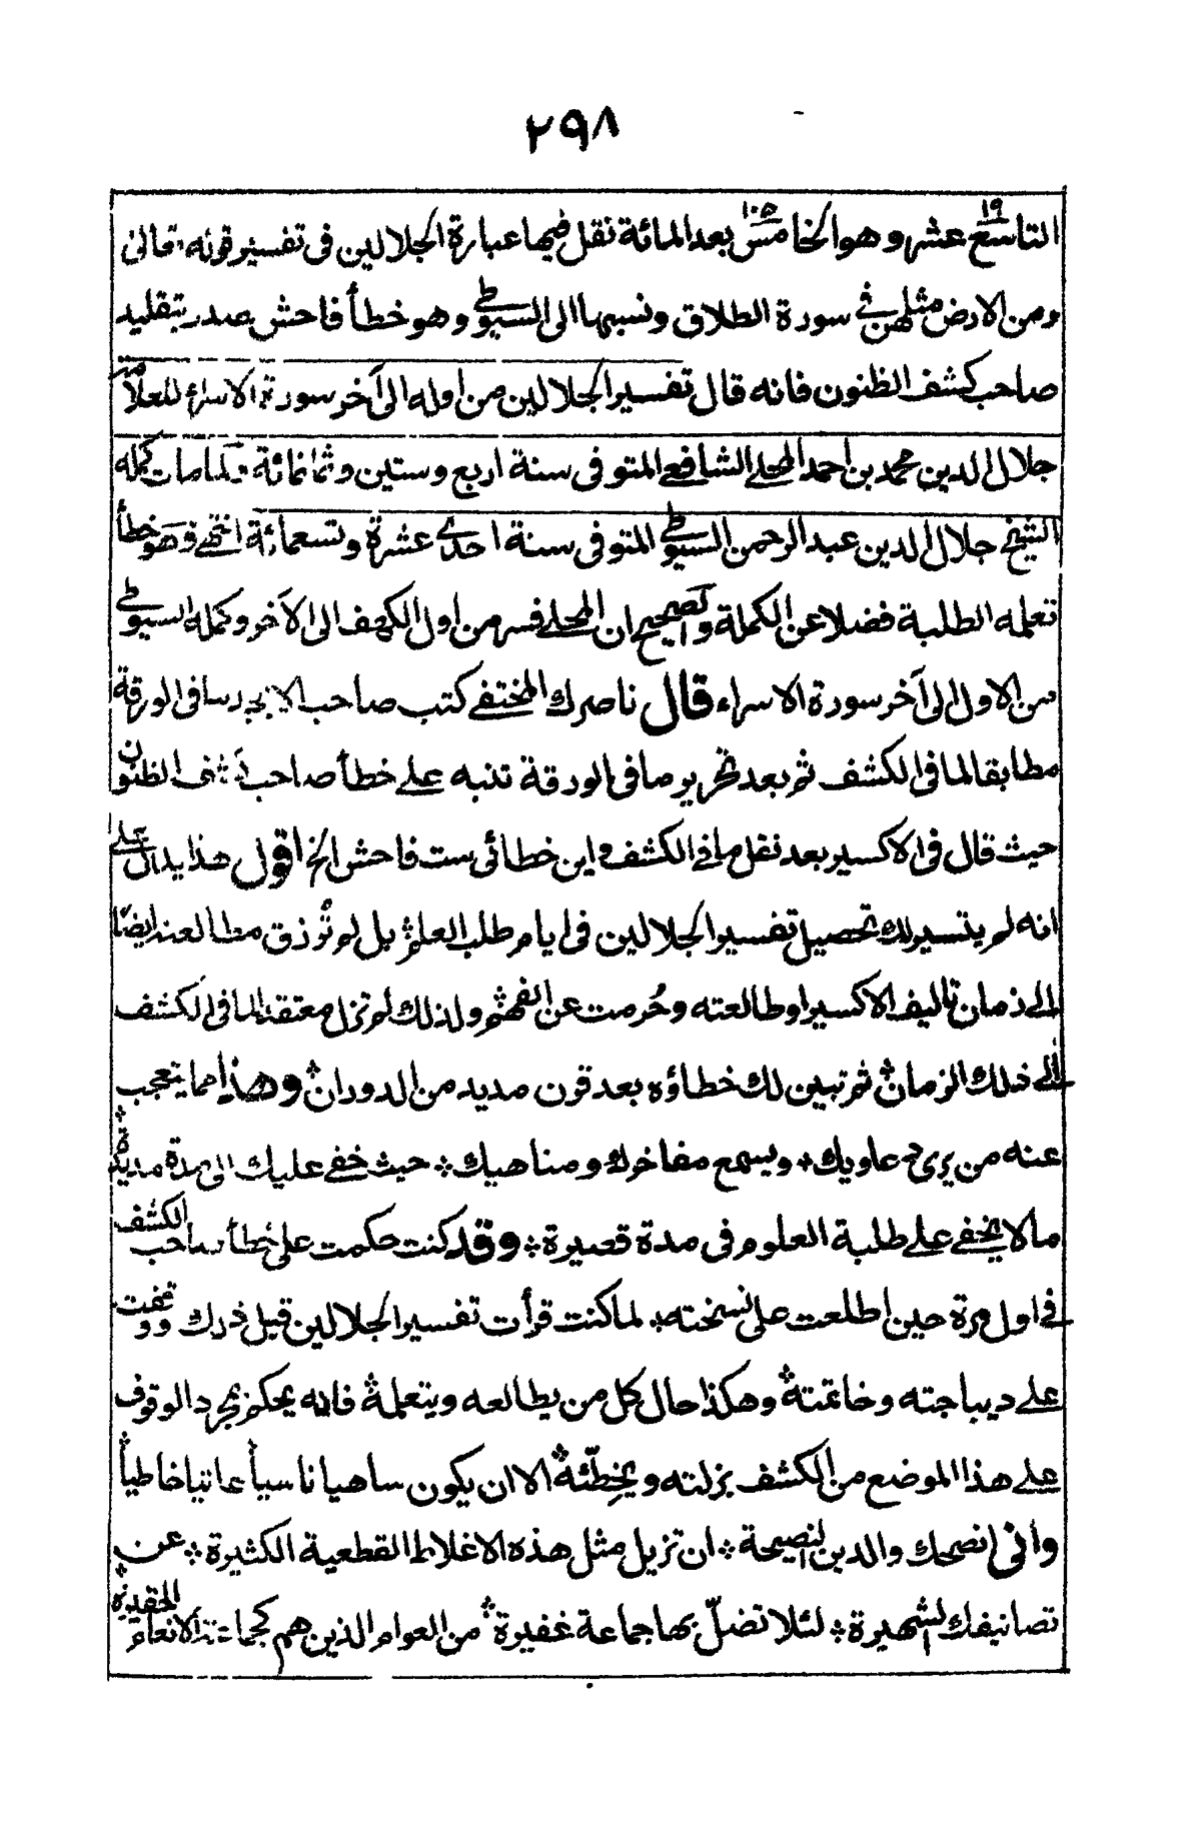 ٢٩٨
١٩ ١٠٥
التاسع عشر وهو الخامس بعد المائة نقل فيها عبارة الجلالين فى تفسير قوله تعالى
ومن الارض مثلهن في سورة الطلاق ونسبها الى السيوطي وهو خطأ فاحش صدر بتقليد
صاحب كشف الظنون فانه قال تفسير الجلالين من اوله الى آخر سورة الاسراء للعلامة
جلال الدين محمد بن احمد المحلي الشافعي المتوفى سنة اربع وستين وثمانمائة ولما مات كمله
الشيخ جلال الدين عبد الرحمن السيوطي المتوفى سنة احدى عشرة وتسعمائة انتهى وهو خطأ
تعلمه الطلبة فضلا عن الكملة والصحيح ان المحلي فسر من اول الكهف الى الآخر وكمله السيوطي
من الاول الى آخر سورة الاسراء قال ناصرك المختفي كتب صاحب الابجد رسا فى الورقة
مطابقا لما فى الكشف ثم بعد تحرير ما فى الورقة تنبه على خطأ صاحب كشف الظنون
حيث قال فى الاكسير بعد نقل ما في الكشف واين خطائى ست فاحش الخ اقول هذا يدل على
انه لم يتيسر لك تحصيل تفسير الجلالين فى ايام طلب العلم ۞ بل لم تُرزق مطالعته ايضًا
الى زمان تاليف الاكسير او طالعته وحُرمت عن الفهم ۞ ولذلك لم تزل معتقدا لما فى الكشف
الى ذلك الزمان ۞ ثم تبين لك خطاؤه بعد قرن مديد من الدوران ۞ وهذا مما يتعجب
عنه من يرى دعاويك ۞ ويسمع مفاخرك ومناهيك ۞ حيث خفي عليك الى مدة مديدة ۞
ما لا يخفى على طلبة العلوم فى مدة قصيرة ۞ وقد كنت حكمت على خطأ صاحب الكشف
في اول مرة حين اطلعت على نسخته ۞ لما كنت قرأت تفسير الجلالين قبل ذلك ووقفت
على ديباجته وخاتمته ۞ وهكذا حال كل من يطالعه ويتعلمه ۞ فانه يحكم بمجرد الوقوف
على هذا الموضع من الكشف بزلته ويخطّئه ۞ الا ان يكون ساهيا ناسيأ عاتيا خاطيأ ۞
وانى انصحك والدين النصيحة ۞ ان تزيل مثل هذه الاغلاط القطعية الكثيرة ۞ عن
تصانيفك الشهيرة ۞ لئلا تضلّ بها جماعة غفيرة ۞ من العوام الذين هم كجماعة الانعام الحقيرة ۞